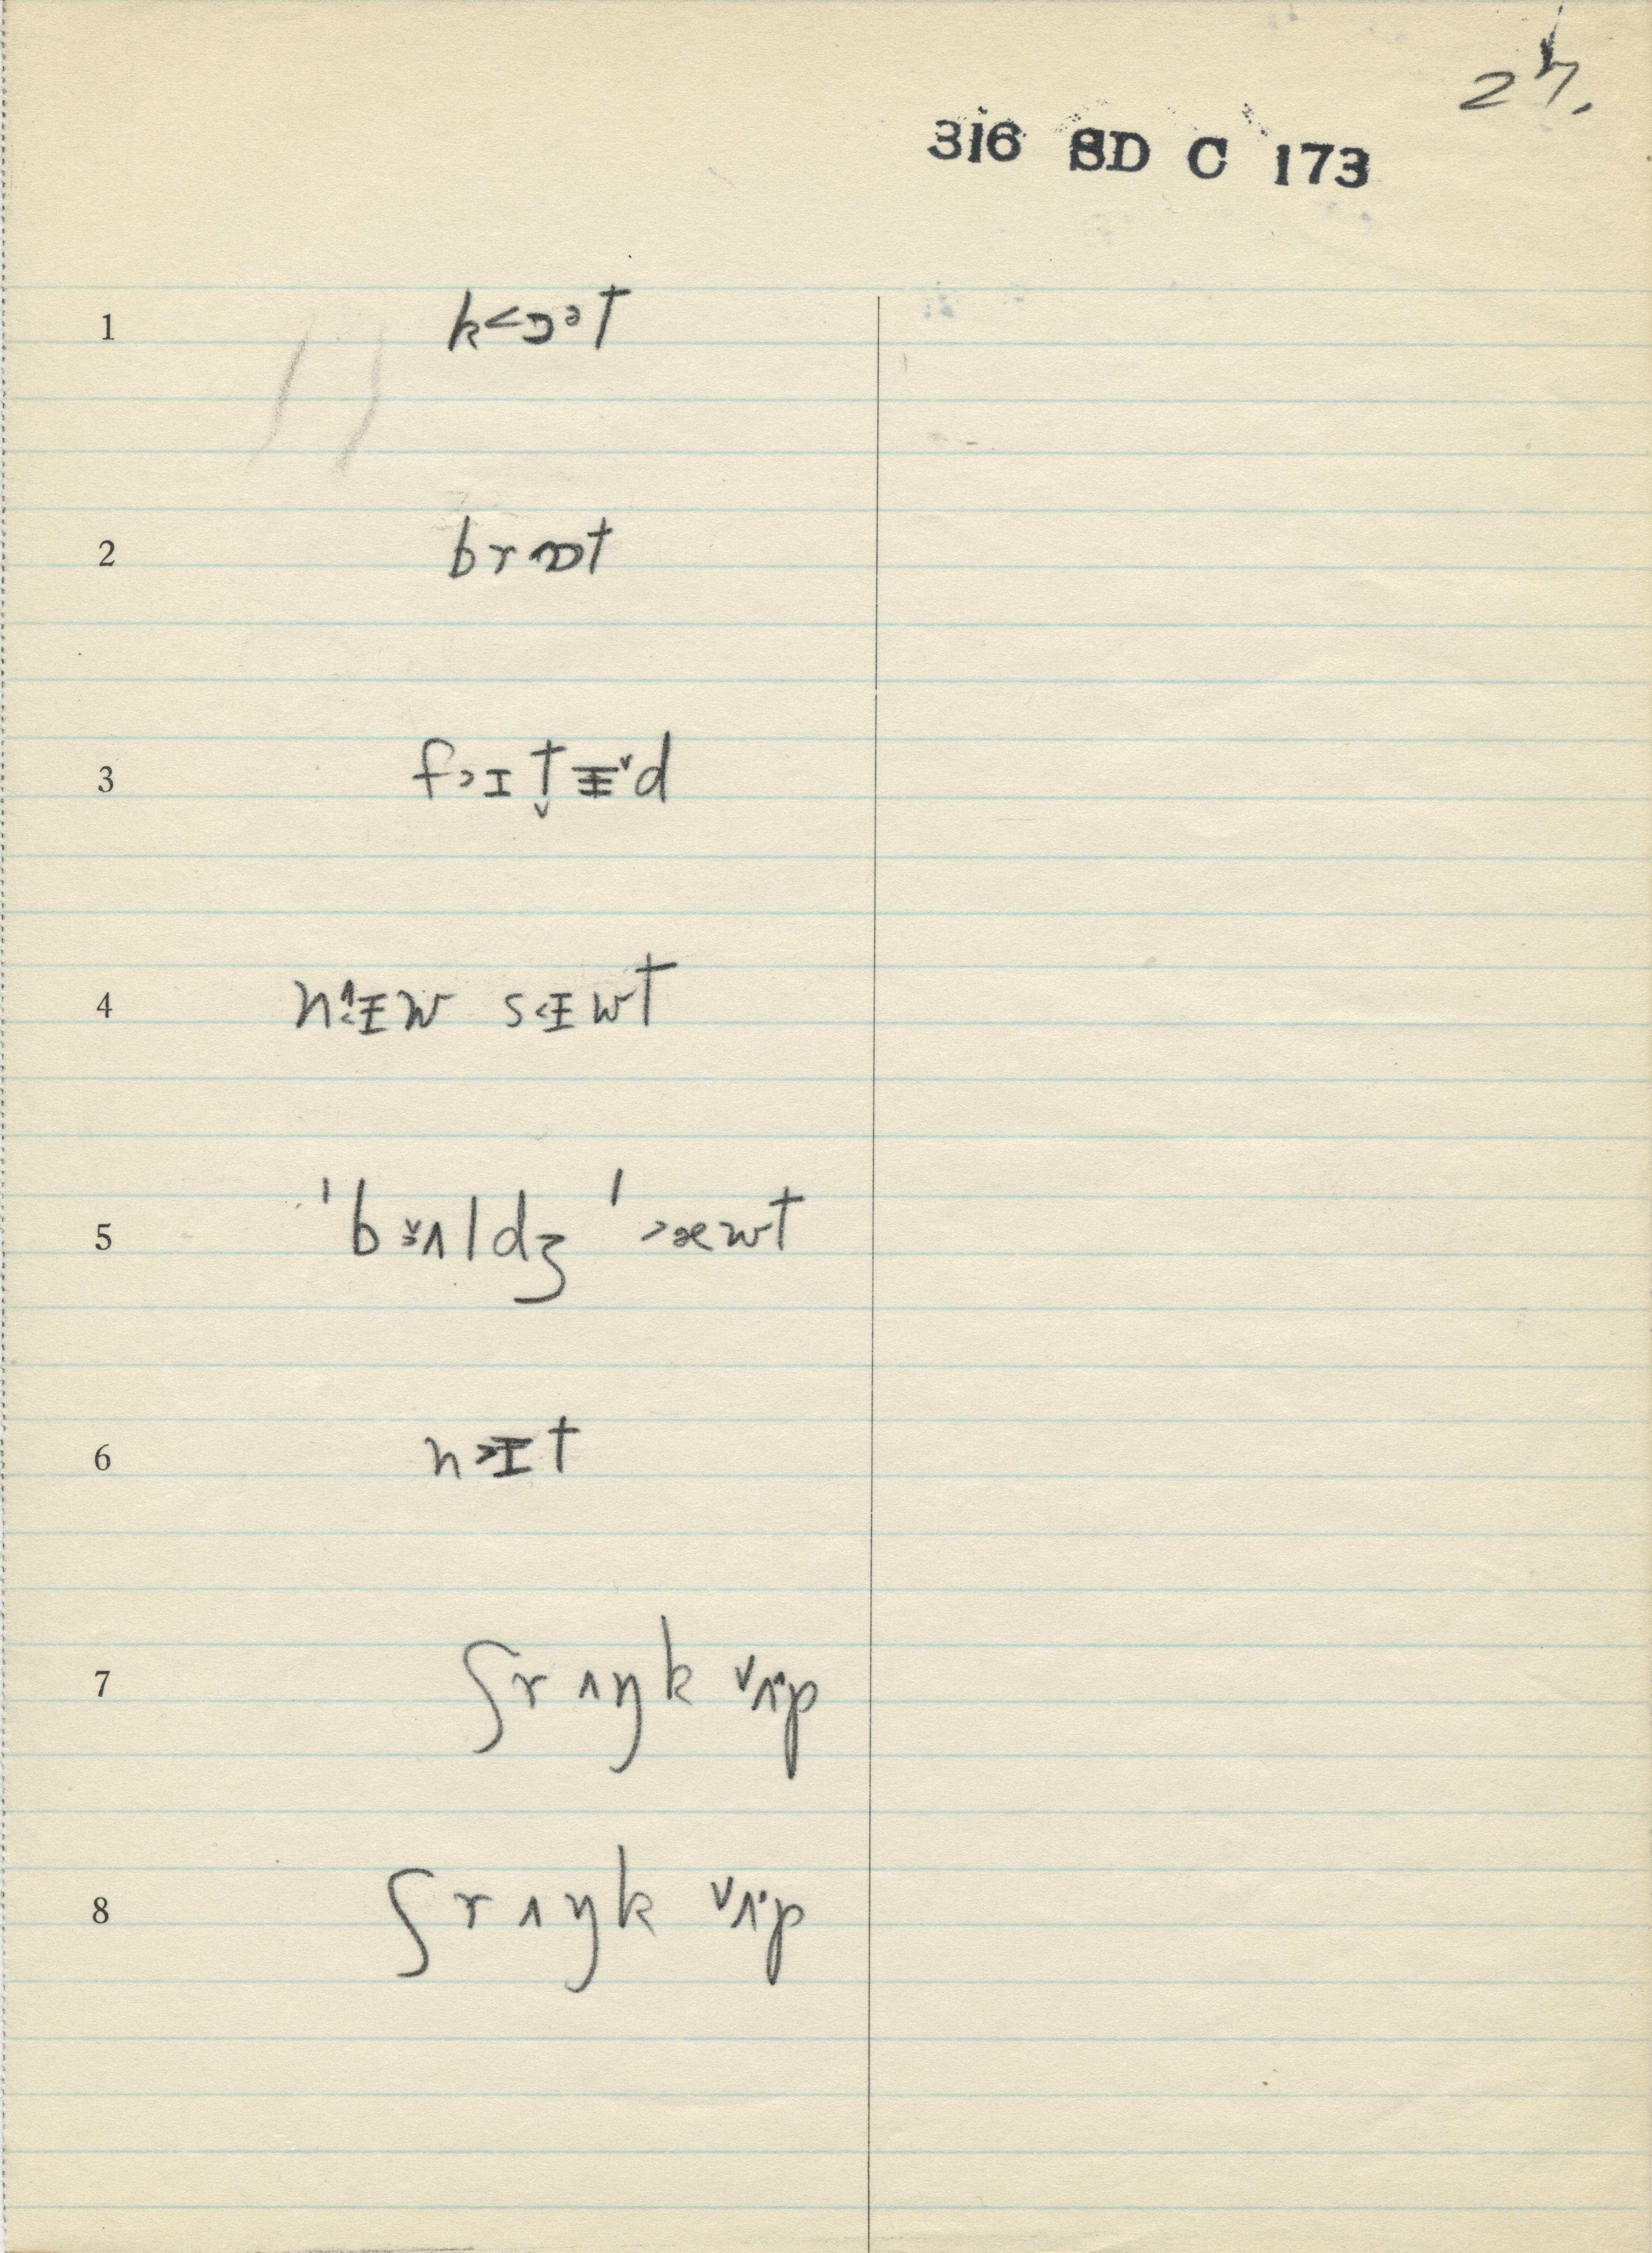 27.
316 SD C 173
1 k<ɔᵊt
2 brɒt
3 f>ɪt̬ɨ˅d
4 n ɨw s<ɨwt
5 ˈbɜʌldʒ ˈ>æwt
6 n>ɪt
7 ʃrʌŋk ˅ʌ·p
8 ʃrʌŋk ˅ʌ·p